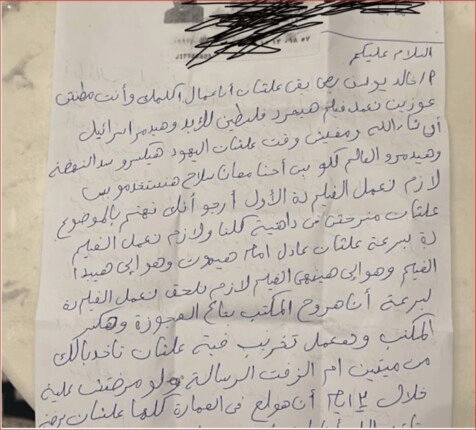 السلام عليكم
أ/ خالد يوسف بص بقى علشان أنا عمال أكلمك وأنت مطنش
عوزين نعمل فيلم هيحرر فلسطين للأبد وهيدمر اسرائيل
أن شاء الله ومفيش وقت علشان اليهود هيكسرو سد النهضة
وهيدمرو العالم كلو بس أحنا معانا سلاح هنستخدمو بس
لازم نعمل الفيلم دة الأول أرجو أنك تهتم بالموضوع
علشان منرحش فى داهية كلنا ولازم نعمل الفيلم
دة بسرعة علشان عادل امام هيموت وهو الى هيبدأ
الفيلم وهو الى هينهى الفيلم لازم نلحق نعمل الفيلم دة
بسرعة أنا هروح المكتب بتاع العجوزة وهكسر
المكتب وهعمل تخريب فية علشان تاخد بالك
من ميتين ام الزفت الرسالة ولو مردتش عليه
خلال ٢ أيام أنا هولع فى العمارة كلها علشان